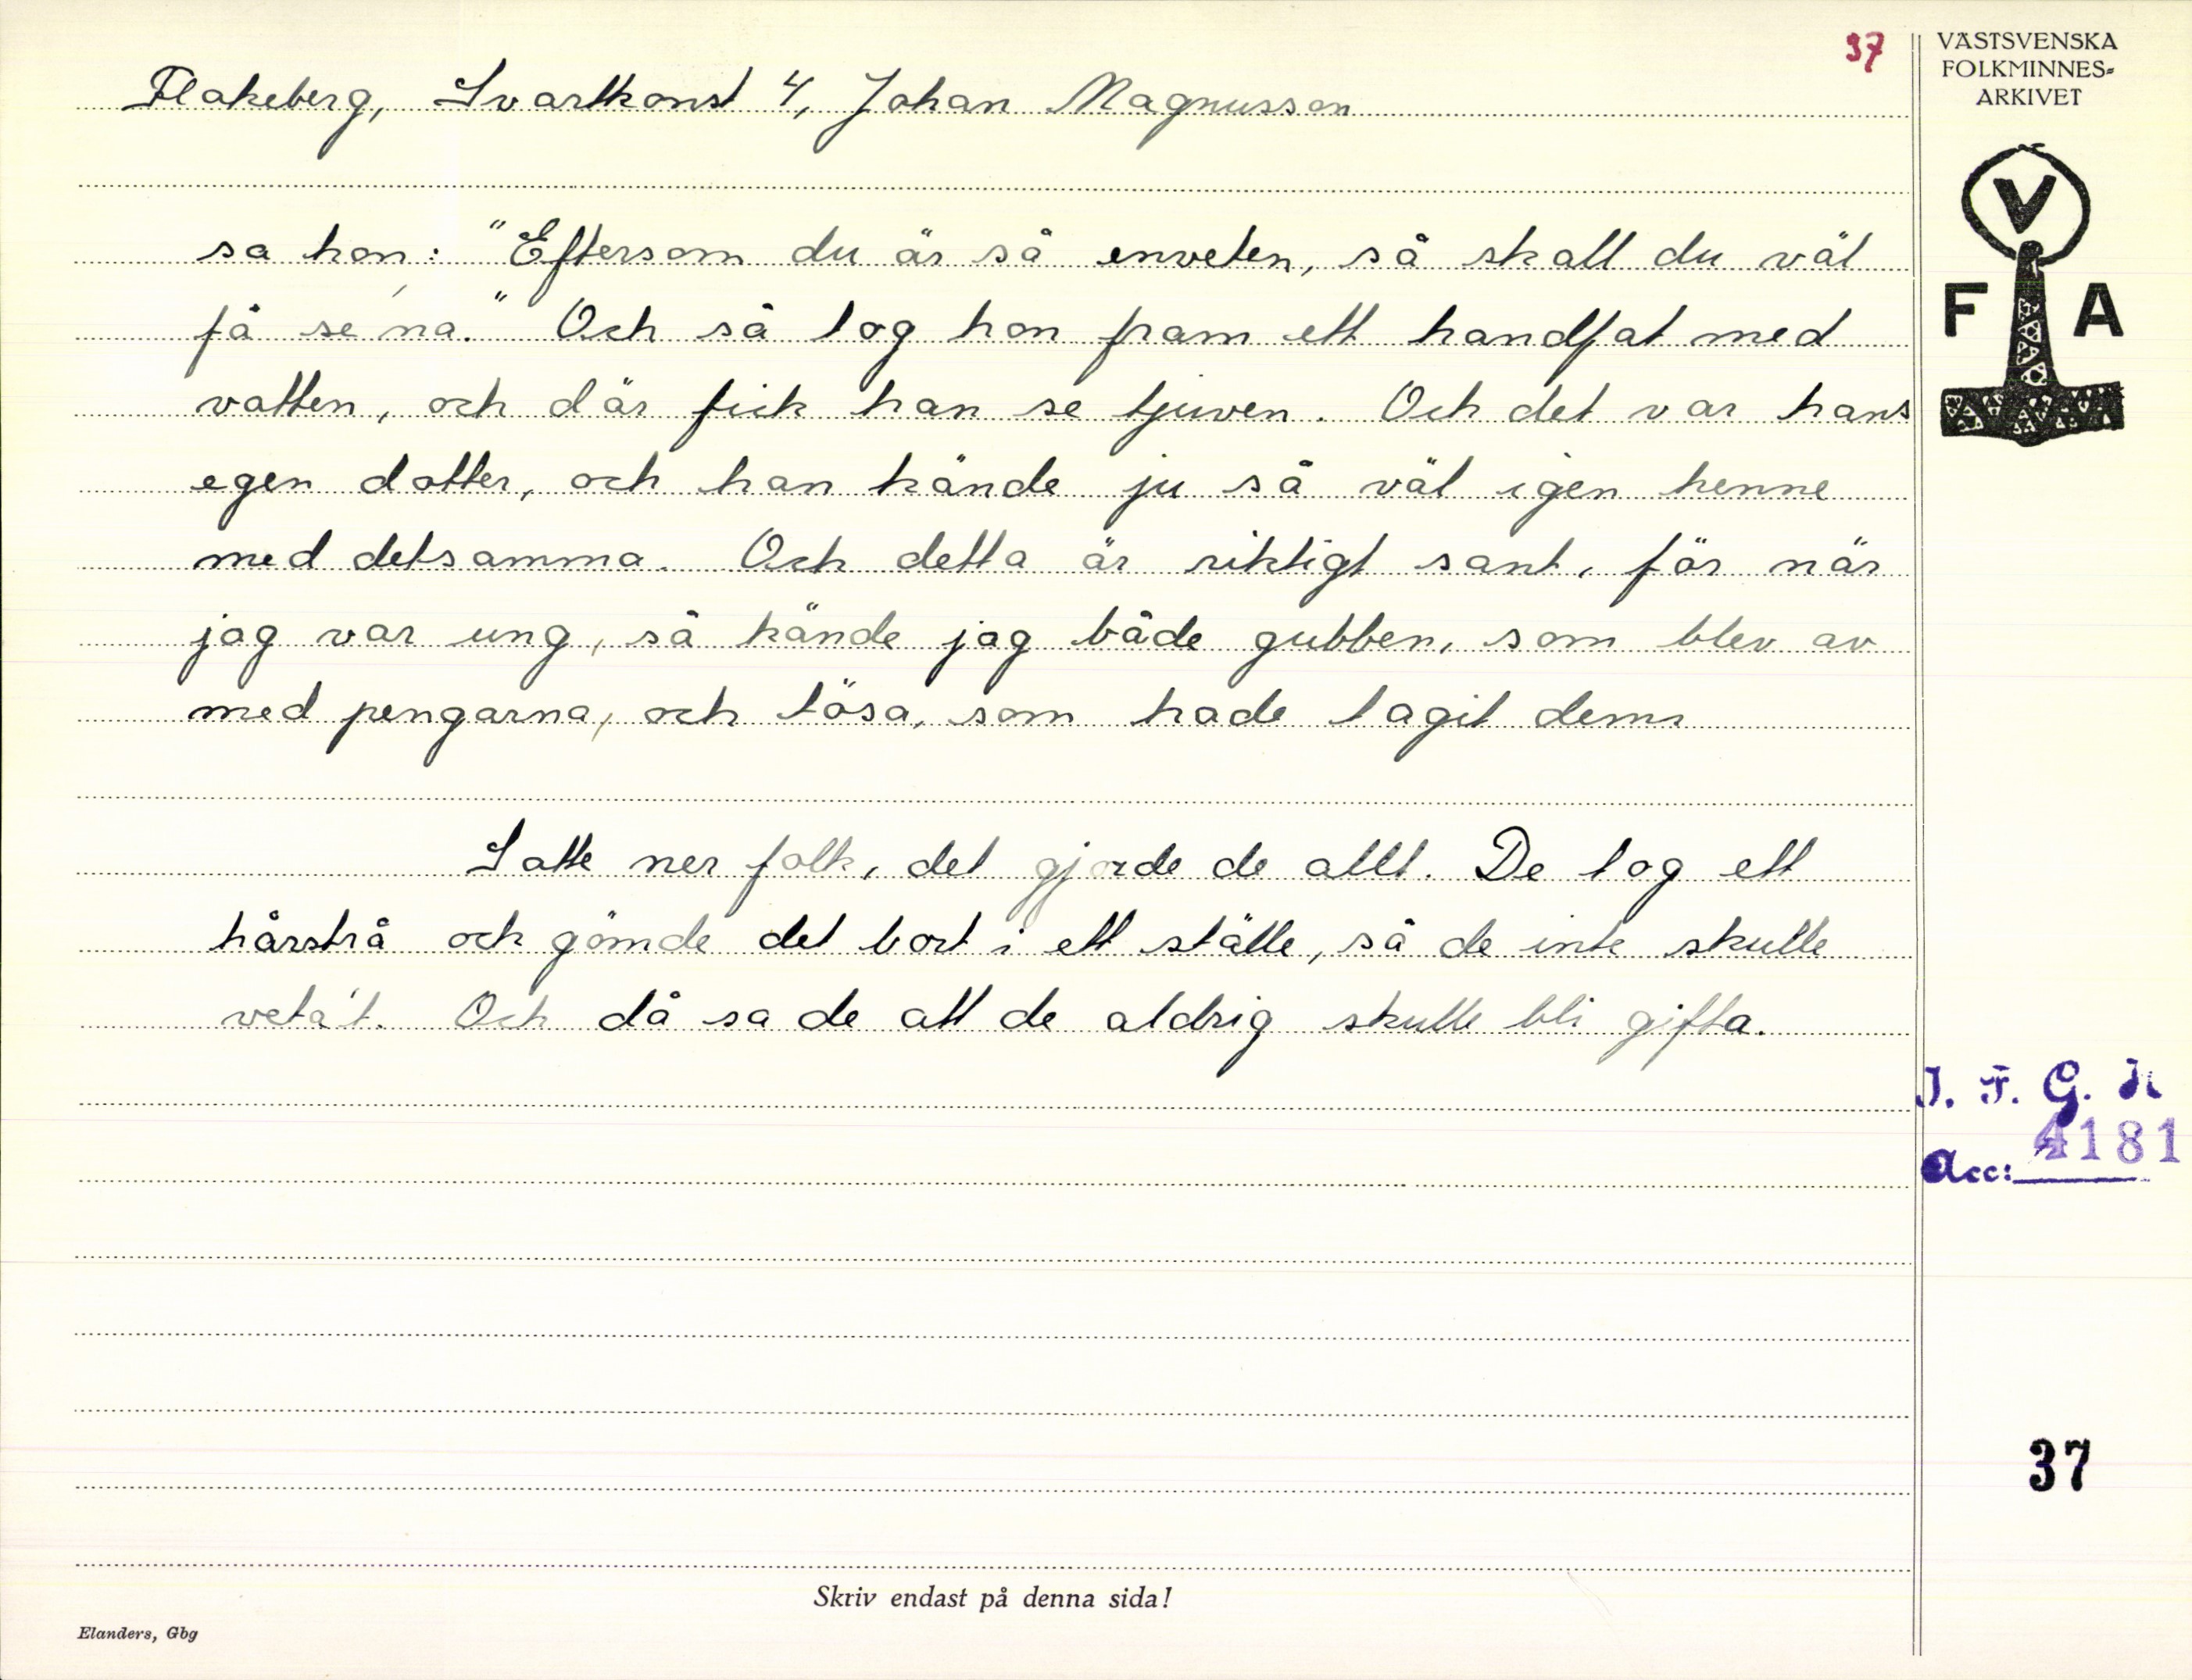 37
VÄSTSVENSKA
FOLKMINNES-
ARKIVET
V
F A
Flakeberg, Svartkonst 4, Johan Magnusson
sa hon: "Eftersom du är så enveten, så skall du väl
få se'na." Och så tog hon fram ett handfat med
vatten, och där fick han se tjuven. Och det var hans
egen dotter, och han kände ju så väl igen henne
med detsamma. Och detta är riktigt sant, för när
jag var ung, så kände jag både gubben, som blev av
med pengarna, och tösa, som hade tagit dem.
Satte ner folk, det gjorde de allt. De tog ett
hårstrå och gömde det bort i ett ställe, så de inte skulle
veta't. Och då sa de att de aldrig skulle bli gifta.
I. F. G. H
Acc: 4181
37
Skriv endast på denna sida!
Elanders, Gbg